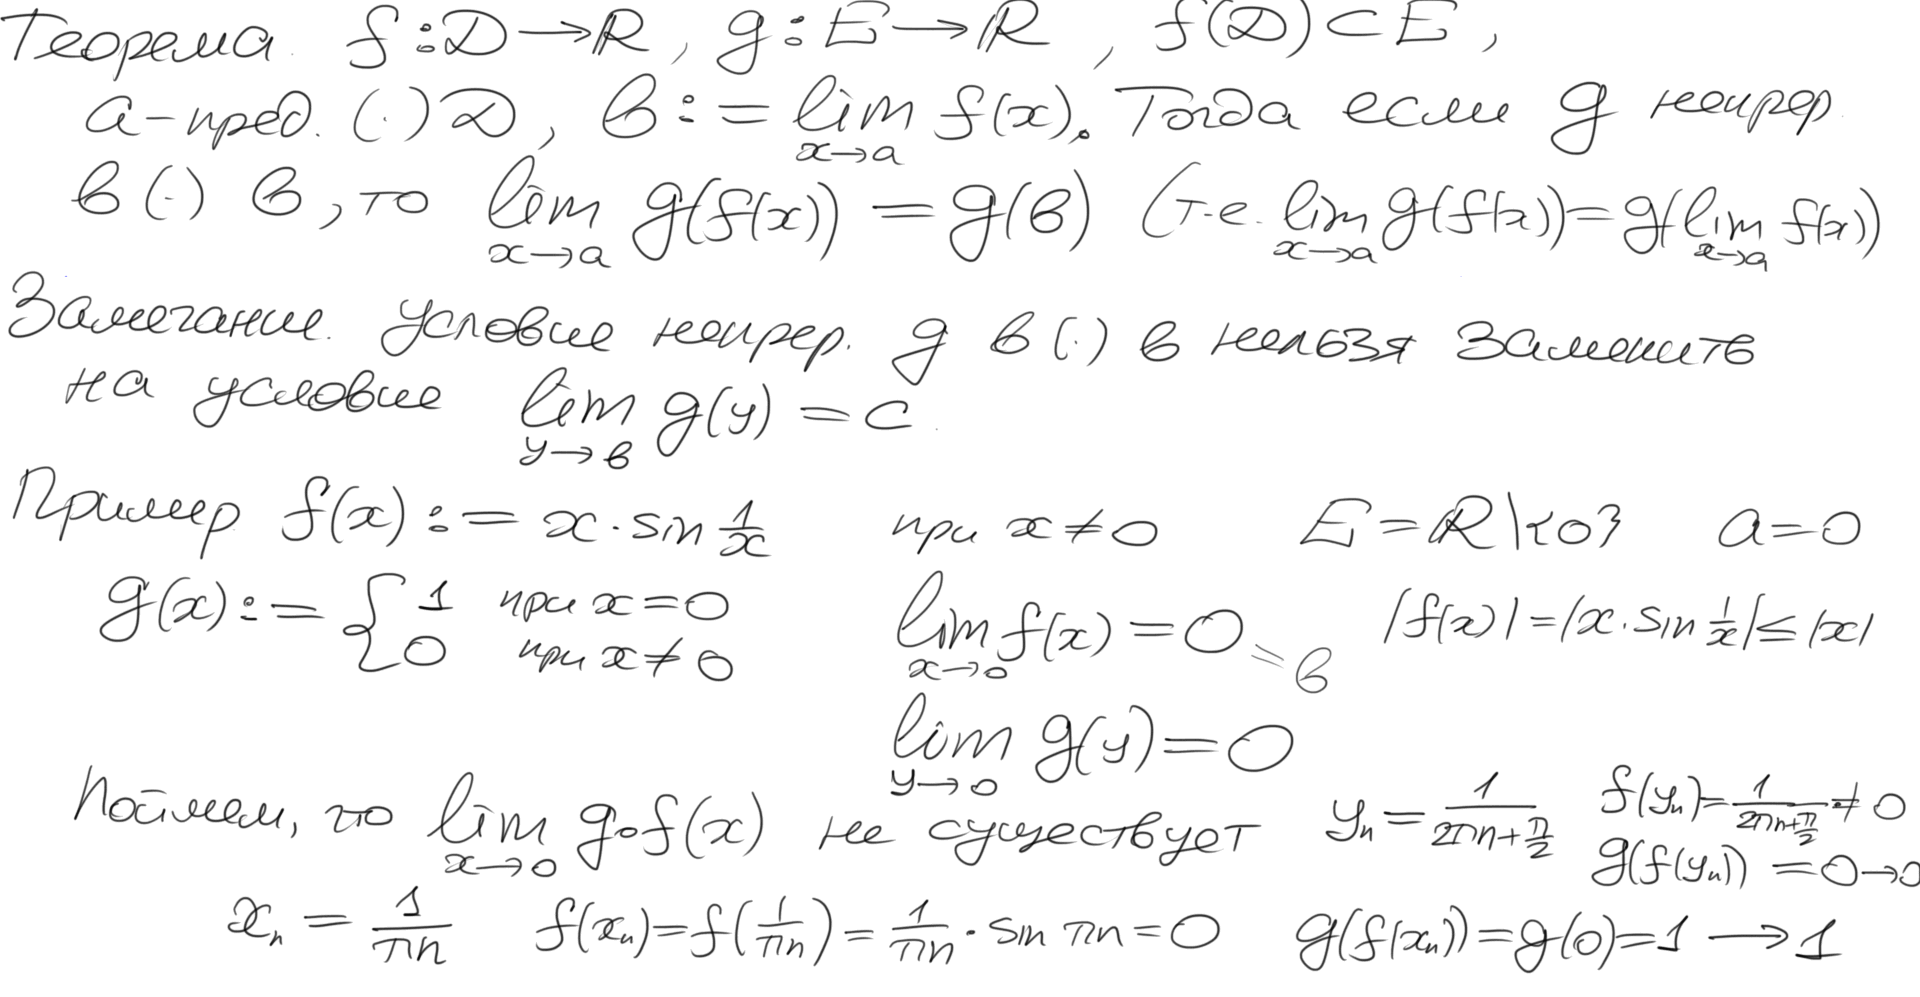 Теорема. f : D → R, g : E → R, f(D) ⊂ E,
a - пред. (·) D, b := lim_{x→a} f(x). Тогда если g непрер.
в (·) b, то lim_{x→a} g(f(x)) = g(b) (т.е. lim_{x→a} g(f(x)) = g(lim_{x→a} f(x))
Замечание. Условие непрер. g в (·) b нельзя заменить
на условие lim_{y→b} g(y) = c.
Пример f(x) := x · sin 1/x при x ≠ 0 E = R \ {0} a = 0
g(x) := { 1 при x = 0
0 при x ≠ 0
lim_{x→0} f(x) = 0 = b |f(x)| = |x · sin 1/x| ≤ |x|
lim_{y→0} g(y) = 0
Поймем, что lim_{x→0} g∘f(x) не существует y_n = 1/(2πn + π/2) f(y_n) = 1/(2πn + π/2) ≠ 0
g(f(y_n)) = 0 → 0
x_n = 1/(πn) f(x_n) = f(1/(πn)) = 1/(πn) · sin πn = 0 g(f(x_n)) = g(0) = 1 → 1